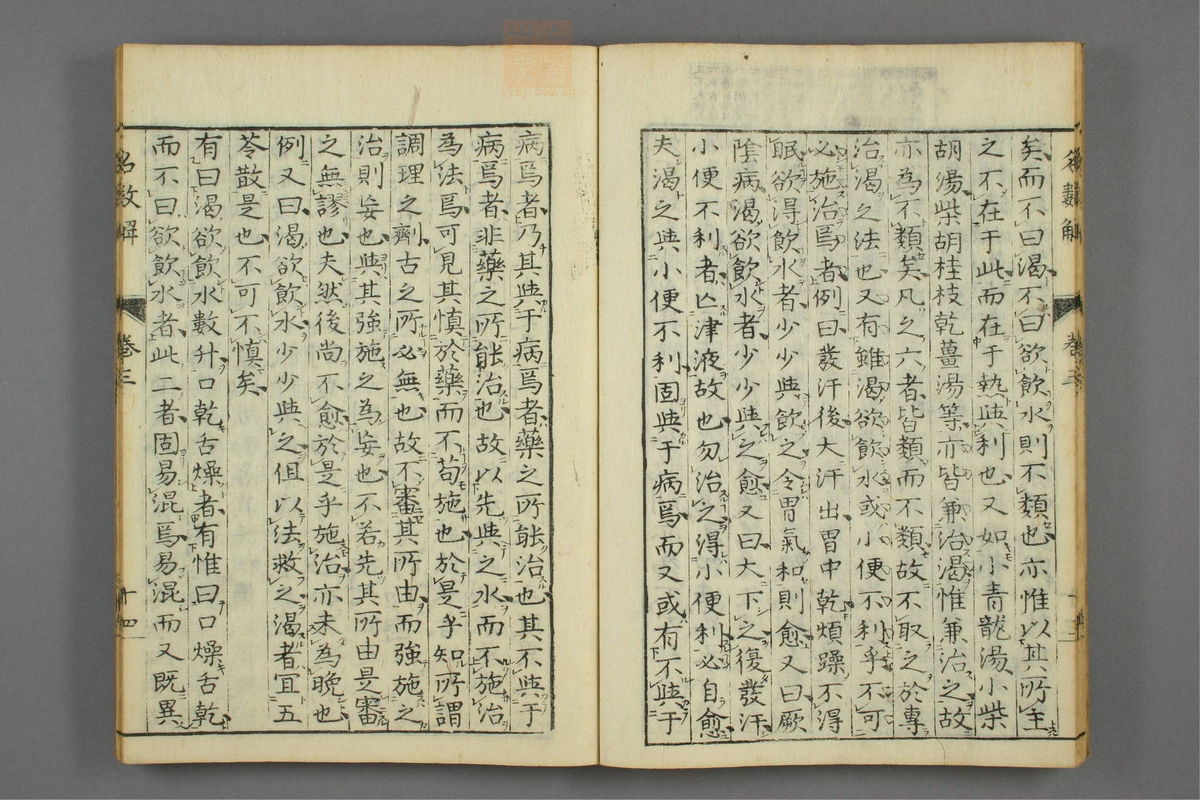 矣而不曰渴不曰欲飲水則不類也亦惟以其所主
之不在于此而在于熱與利也又如小青龍湯小柴
胡湯柴胡桂枝乾薑湯等亦皆兼治渴惟兼治之故
亦為不類矣凡之六者皆類而不類故不取之於專
治渴之法也又有雖渴欲飲水或小便不利乎不可
必施治焉者例曰發汗後大汗出胃中乾煩躁不得
眠欲得飲水者少少與飲之令胃氣和則愈又曰厥
陰病渴欲飲水者少少與之愈又曰大下之後發汗
小便不利者亾津液故也勿治之得小便利必自愈
夫渴之與小便不利固與于病焉而又或有不與于
病焉者乃其與于病焉者藥之所能治也其不與于
病焉者非藥之所能治也故以先與之水而不施治
為法焉可見其慎於藥而不苟施也於是乎知所謂
調理之劑古之所必無也故不審其所由而強施之
治則妄也與其強施之為妄也不若先其所由是審
之無謬也夫然後尚不愈於是乎施治亦未為晚也
例又曰渴欲飲水少少與之但以法救之渴者宜五
苓散是也不可不慎矣
有曰渴欲飲水數升口乾舌燥者有惟曰口燥舌乾
而不曰欲飲水者此二者固易混焉易混而又既異
名數解
卷三
十四